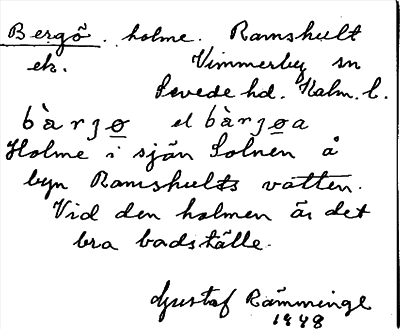 Bergö. holme. Ramshult
ek. Vimmerby sn
Sevede hd. Kalm. l.
bàrgo el bàrgoa
Holme i sjön Solnen å
byn Ramshults vatten.
Vid den holmen är det
bra badställe.
Gustaf Rämminge
1948